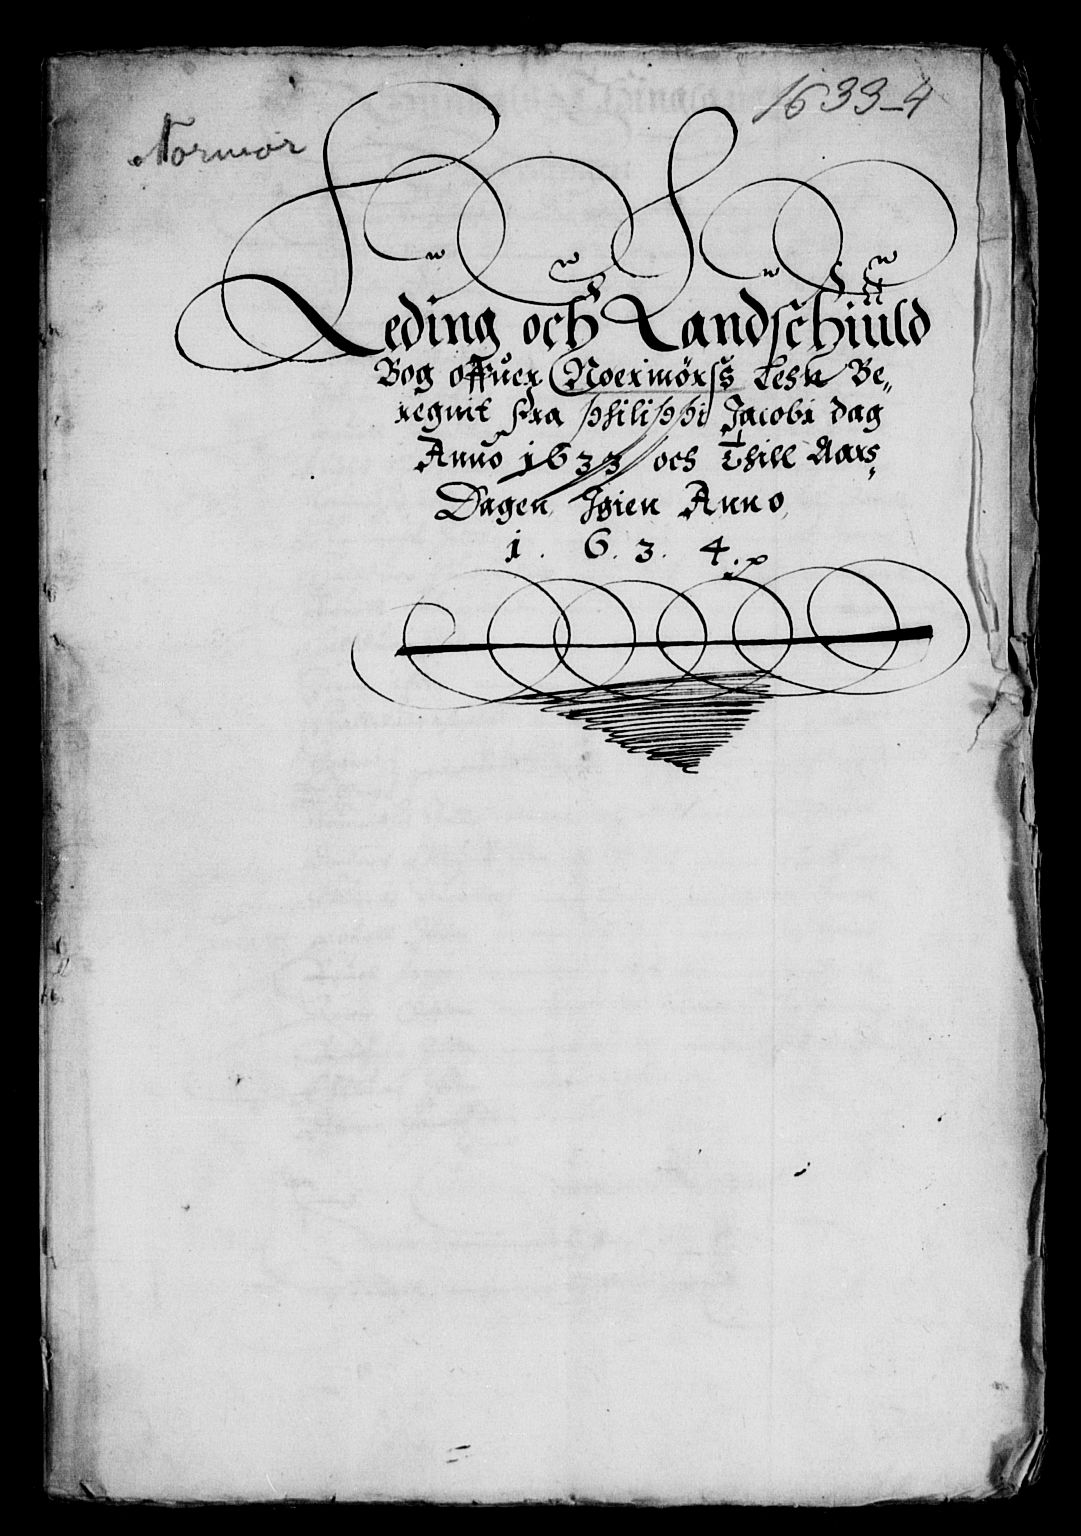 1633-4
Normør
Leding och Landschiuld
Bog offuer Noermörss Lehn Be„
regnit fra philippi Jacobi dag
Anno 1633 och Thill Aars
Dagen Igien Anno
1. 6. 3. 4.